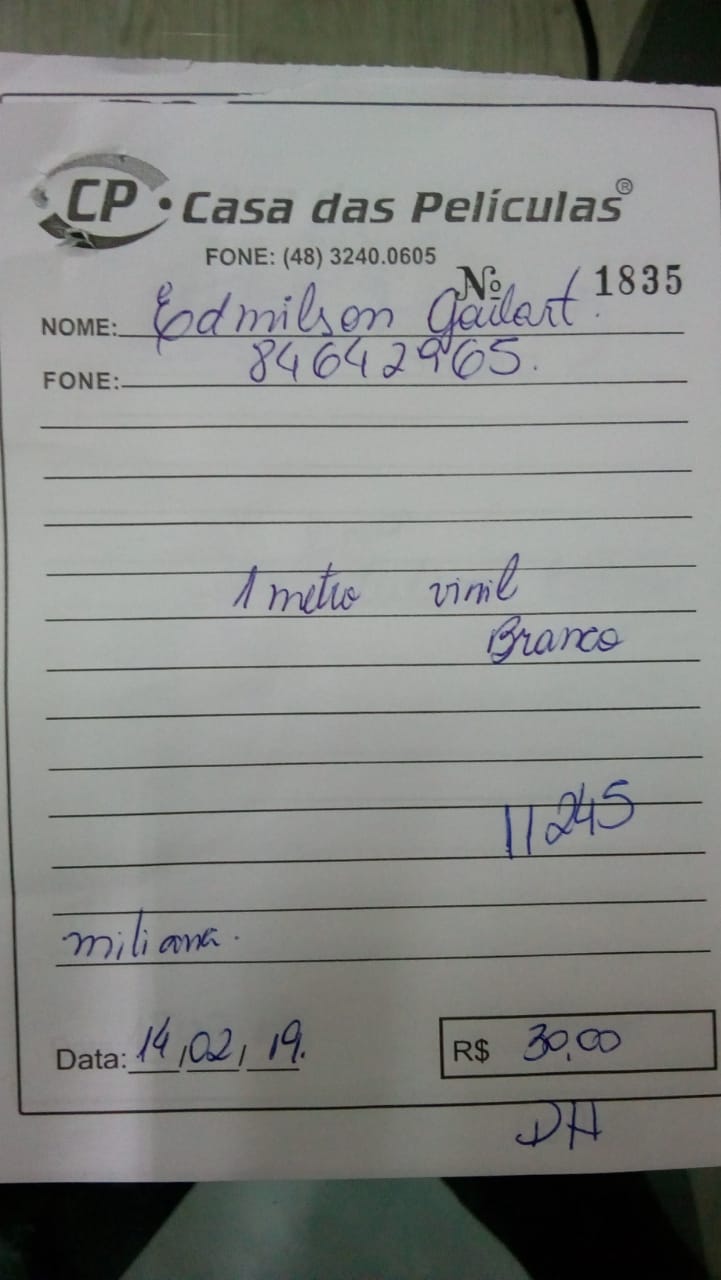 CP • Casa das Películas®
FONE: (48) 3240.0605
Nº 1835
NOME: Edmilson Gailart.
FONE: 84642965.
1 metro vinil
Branco
11245
miliana.
Data: 14,02,19.
R$ 30,00
DH